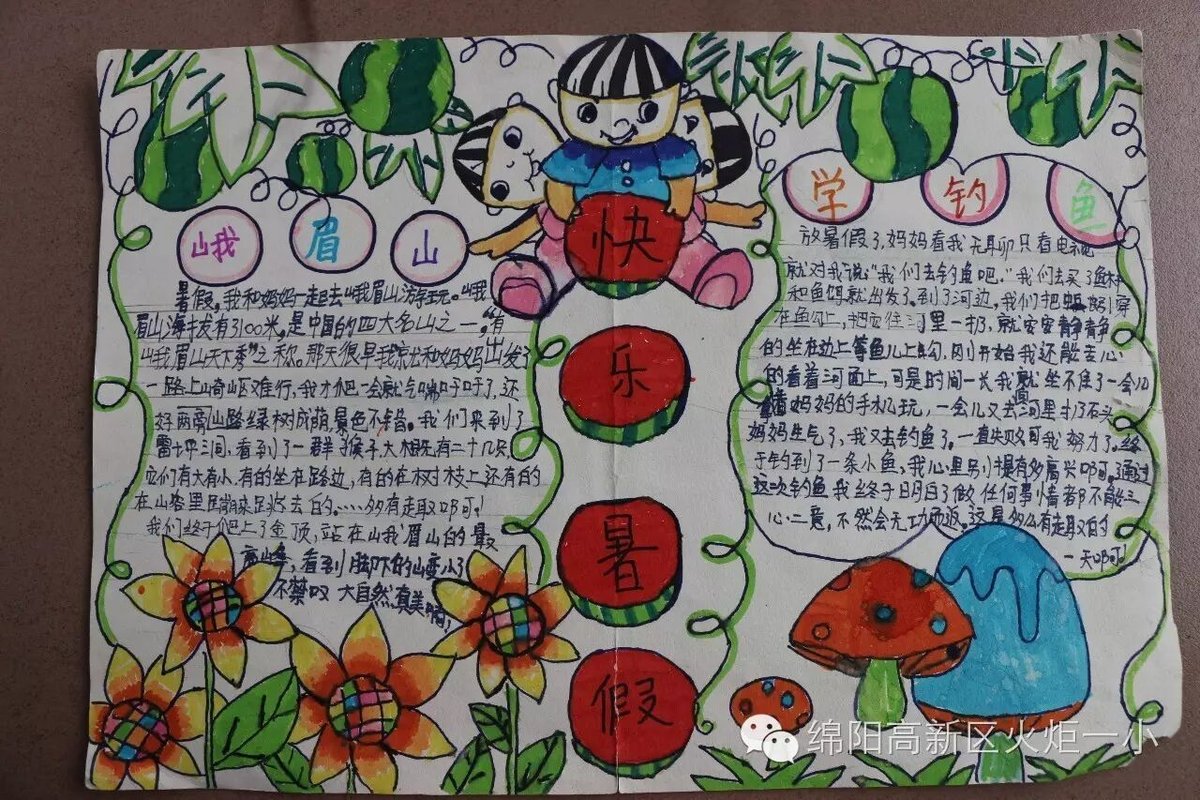 峨眉山
暑假。我和妈妈一起去峨眉山游玩。峨
眉山海拔有3100米。是中国的四大名山之一。有
"峨眉山天下秀"之称。那天很早我就和妈妈出发了
一路上崎岖难行,我才爬一会就气喘吁吁了,还
好两旁山路绿树成荫,景色不错。我们来到了
雷坪洞,看到了一群猴子,大概有二十几只,
它们有大有小,有的坐在路边,有的在树枝上还有的
在山谷里
去的……多有趣啊!
我们终于爬上了金顶,站在峨眉山的最
高峰,看到脚下的山变小了
不禁叹 大自然真美啊!
快
乐
暑
假
学钓鱼
放暑假了,妈妈看我无聊只看电视
就对我说:"我们去钓鱼吧。"我们去买了鱼杆
和鱼饵就出发了。到了河边,我们把蚯蚓穿
在鱼勾上,把它往河里一扔,就安安静静
的坐在边上等鱼儿上勾,刚开始我还能苦心
的看着河面上,可是时间一长我就坐不住了一会儿
拿着妈妈的手机玩,一会儿又去河里扔石头
妈妈生气了,我又去钓鱼了。一直
我努力了。终
于钓到了一条小鱼,我心里别提有多高兴啊!通过
这次钓鱼我终于明白了做任何事情都不能三
心二意,不然会无功而返。这是多么有趣的
一天啊!
绵阳高新区火炬一小